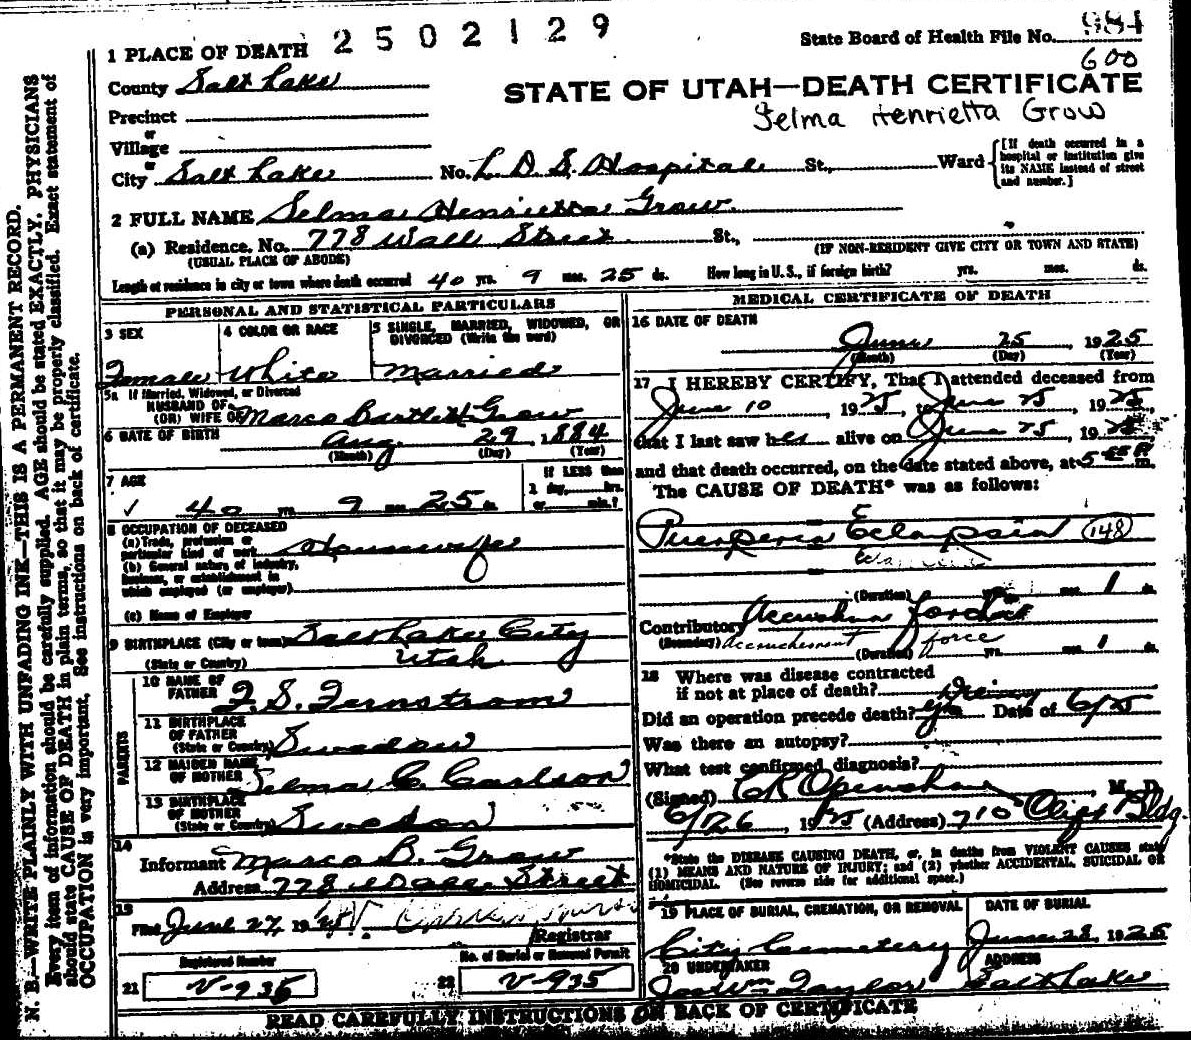 2502129
State Board of Health File No. 984
600
1 PLACE OF DEATH
County Salt Lake
STATE OF UTAH—DEATH CERTIFICATE
Selma Henrietta Grow
Precinct
or
Village
or
City Salt Lake No. L. D. S. Hospital St., Ward
[If death occurred in a hospital or institution give its NAME instead of street and number.]
2 FULL NAME Selma Henrietta Grow
(a) Residence. No. 778 Wall Street St.,
(USUAL PLACE OF ABODE) (IF NON-RESIDENT GIVE CITY OR TOWN AND STATE)
Length of residence in city or town where death occurred 40 yrs. 9 mos. 25 ds. How long in U. S., if foreign birth? yrs. mos. ds.
PERSONAL AND STATISTICAL PARTICULARS
3 SEX
Female
4 COLOR OR RACE
White
5 SINGLE, MARRIED, WIDOWED, OR DIVORCED (Write the word)
Married
5a If Married, Widowed, or Divorced
HUSBAND OF
(OR) WIFE OF Marco Bartlett Grow
6 DATE OF BIRTH Aug. 29, 1884
(Month) (Day) (Year)
7 AGE
40 yrs. 9 mos. 25
If LESS than
1 day, hrs.
or min.?
8 OCCUPATION OF DECEASED
(a) Trade, profession or
particular kind of work Housewife
(b) General nature of industry,
business, or establishment in
which employed (or employer)
(c) Name of Employer
9 BIRTHPLACE (City or town) Salt Lake City
(State or Country) Utah
PARENTS
10 NAME OF
FATHER F. S. Fernstrom
11 BIRTHPLACE
OF FATHER
(State or Country) Sweden
12 MAIDEN NAME
OF MOTHER Selma C. Carlson
13 BIRTHPLACE
OF MOTHER
(State or Country) Sweden
14
Informant Marco B. Grow
Address 778 Wall Street
15
Filed June 27, 192
Registrar
Registered Number
21 V-935
No. of Burial or Removal Permit
22 V-935
MEDICAL CERTIFICATE OF DEATH
16 DATE OF DEATH
June 25 1925
(Month) (Day) (Year)
17 I HEREBY CERTIFY, That I attended deceased from
June 10, 1925, June 25, 1925
that I last saw her alive on June 25, 1925
and that death occurred, on the date stated above, at 5 m.
The CAUSE OF DEATH* was as follows:
E
Puerperia Eclampsia 148
(Duration) yrs. mos. 1 ds.
Contributory Accouchen force
(Secondary) Accouchement force
(Duration) yrs. mos. 1 ds.
18 Where was disease contracted
if not at place of death?
Did an operation precede death? yes Date of 6/25
Was there an autopsy?
What test confirmed diagnosis?
(Signed) C R Openshaw, M. D.
6/26, 1925 (Address) 710 Clift Bldg.
*State the DISEASE CAUSING DEATH, or, in deaths from VIOLENT CAUSES state
(1) MEANS AND NATURE OF INJURY; and (2) whether ACCIDENTAL, SUICIDAL OR
HOMICIDAL. (See reverse side for additional space.)
19 PLACE OF BURIAL, CREMATION, OR REMOVAL
City Cemetery
DATE OF BURIAL
June 28, 1925
20 UNDERTAKER
Jos Wm Taylor
ADDRESS
Salt Lake
READ CAREFULLY INSTRUCTIONS ON BACK OF CERTIFICATE
N. B.—WRITE PLAINLY WITH UNFADING INK—THIS IS A PERMANENT RECORD.
Every item of information should be carefully supplied. AGE should be stated EXACTLY. PHYSICIANS
should state CAUSE OF DEATH in plain terms, so that it may be properly classified. Exact statement of
OCCUPATION is very important. See instructions on back of certificate.